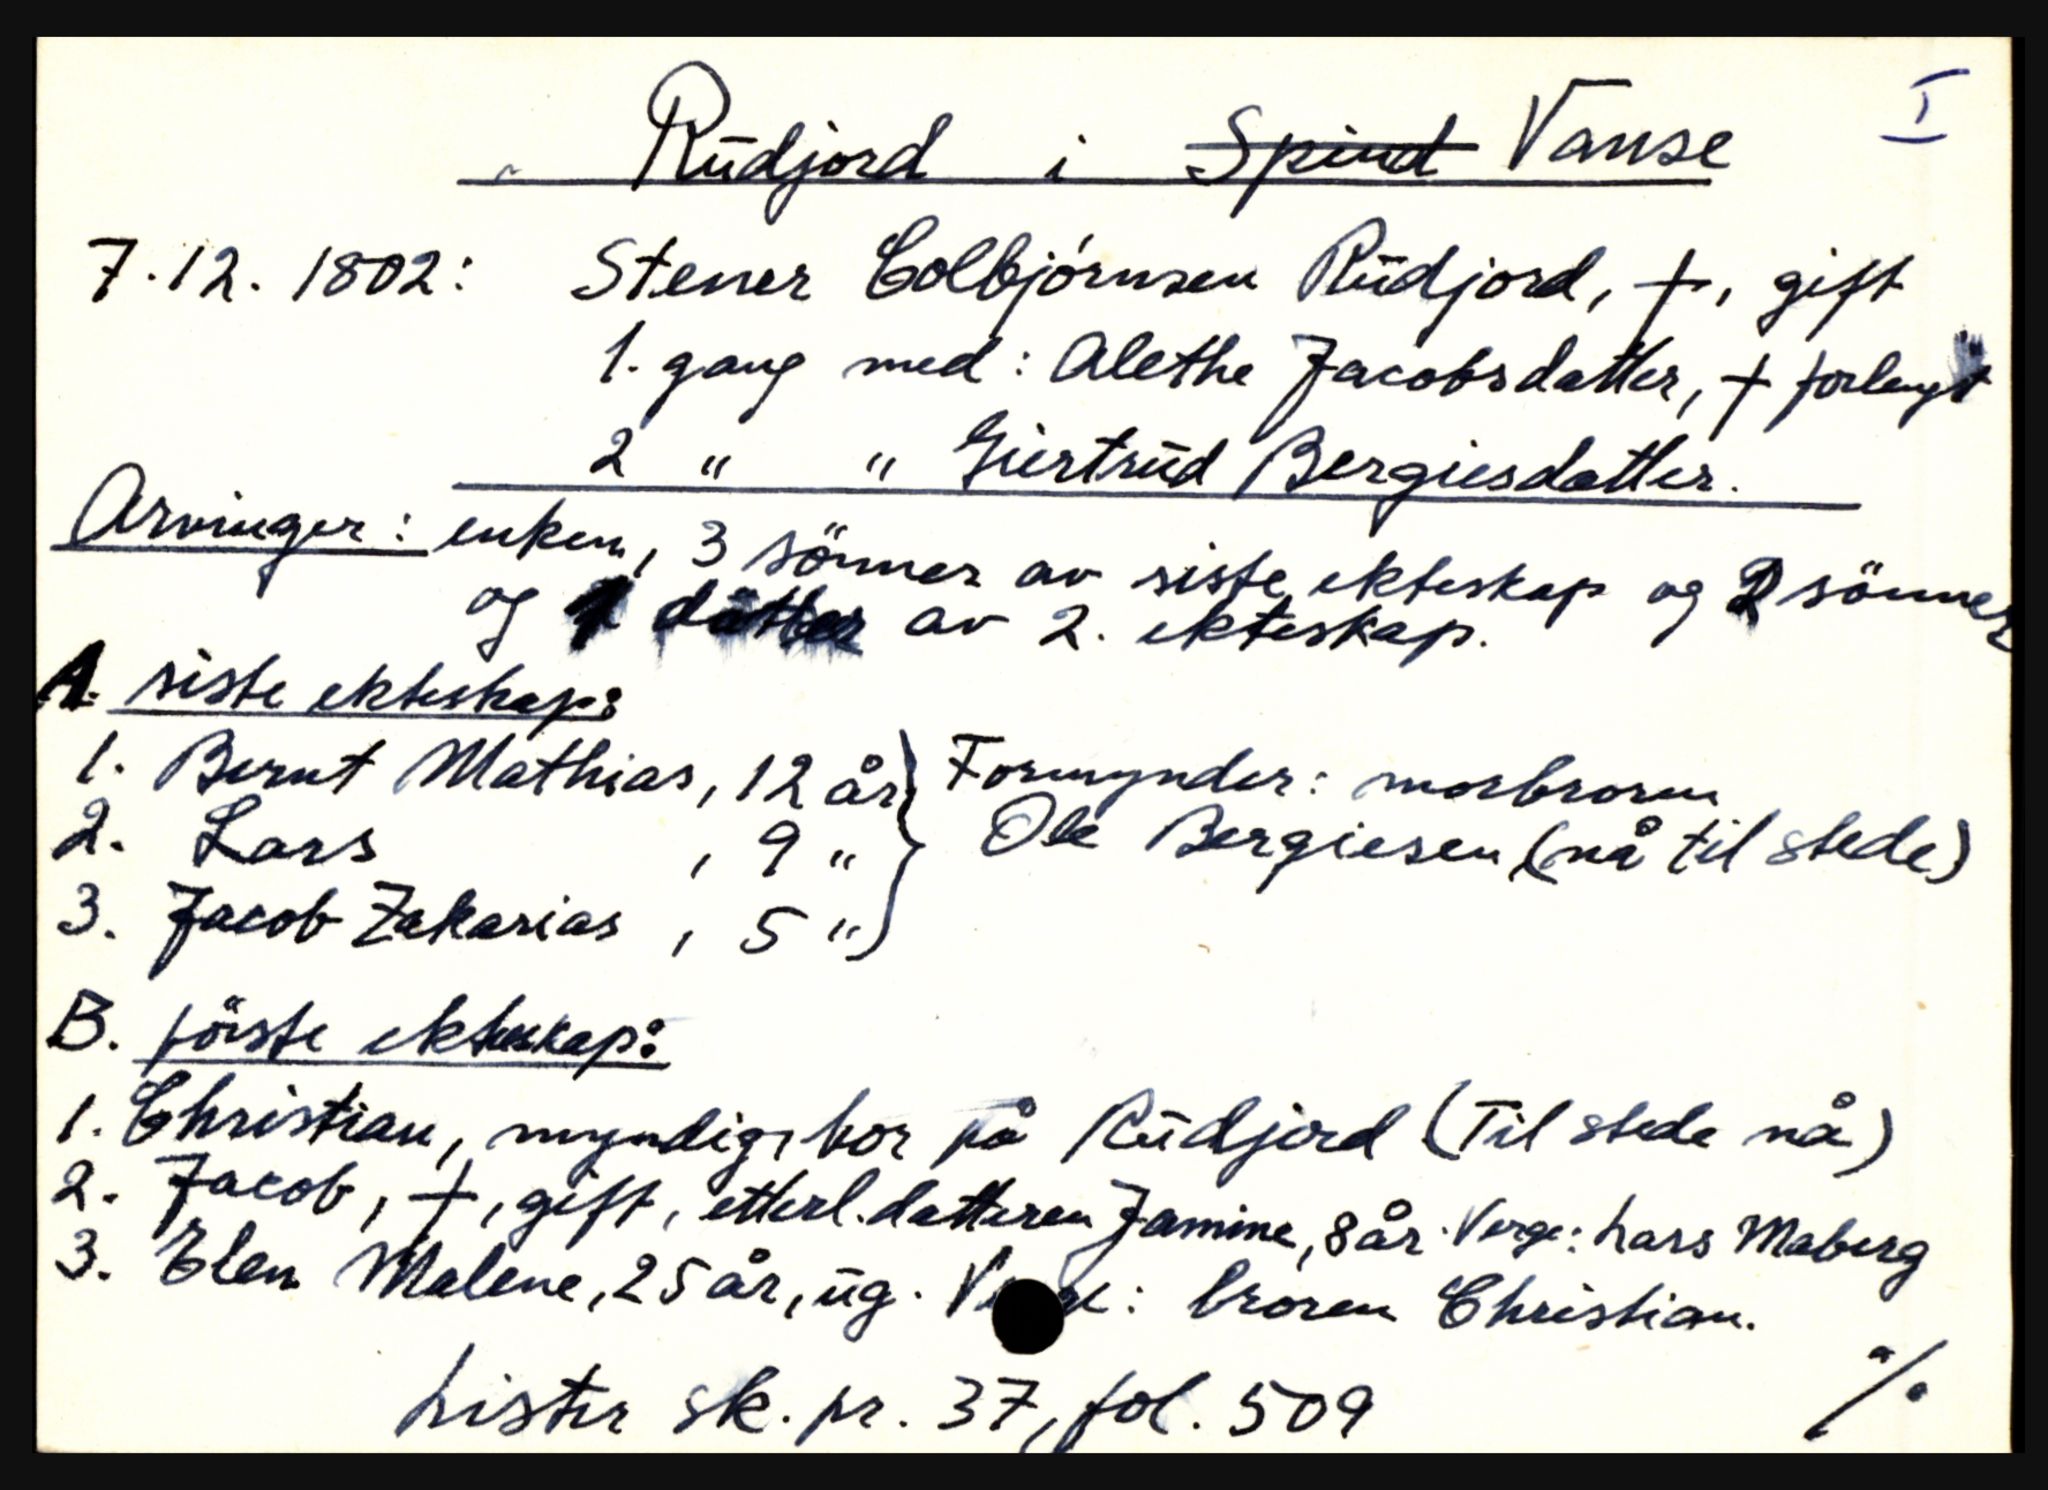 I
Rūdjord i Spind Vanse
7.12.1802: Stener Colbjørnsen Rūdjord, †, gift
1. gang med: Alethe Jacobsdatter, † forlengst
2 " " Giertrūd Bergiesdatter.
Arvinger: enken, 3 sönner av siste ekteskap og 2 sönner
og 1 datter av 2. ekteskap.
A. siste ekteskap:
1. Bernt Mathias, 12 år } Formynder: morbroren
2. Lars , 9 " } Ole Bergiesen (nå til stede)
3. Jacob Zakarias , 5 "
B. förste ekteskap:
1. Christian, myndig, bor på Rūdjord (Til stede nå)
2. Jacob, †, gift, etterl. datteren Jamine, 8 år. Verge: Lars Maberg
3. Elen Malene, 25 år, ūg. Verge: broren Christian.
Lister sk. pr. 37, fol. 509
./.